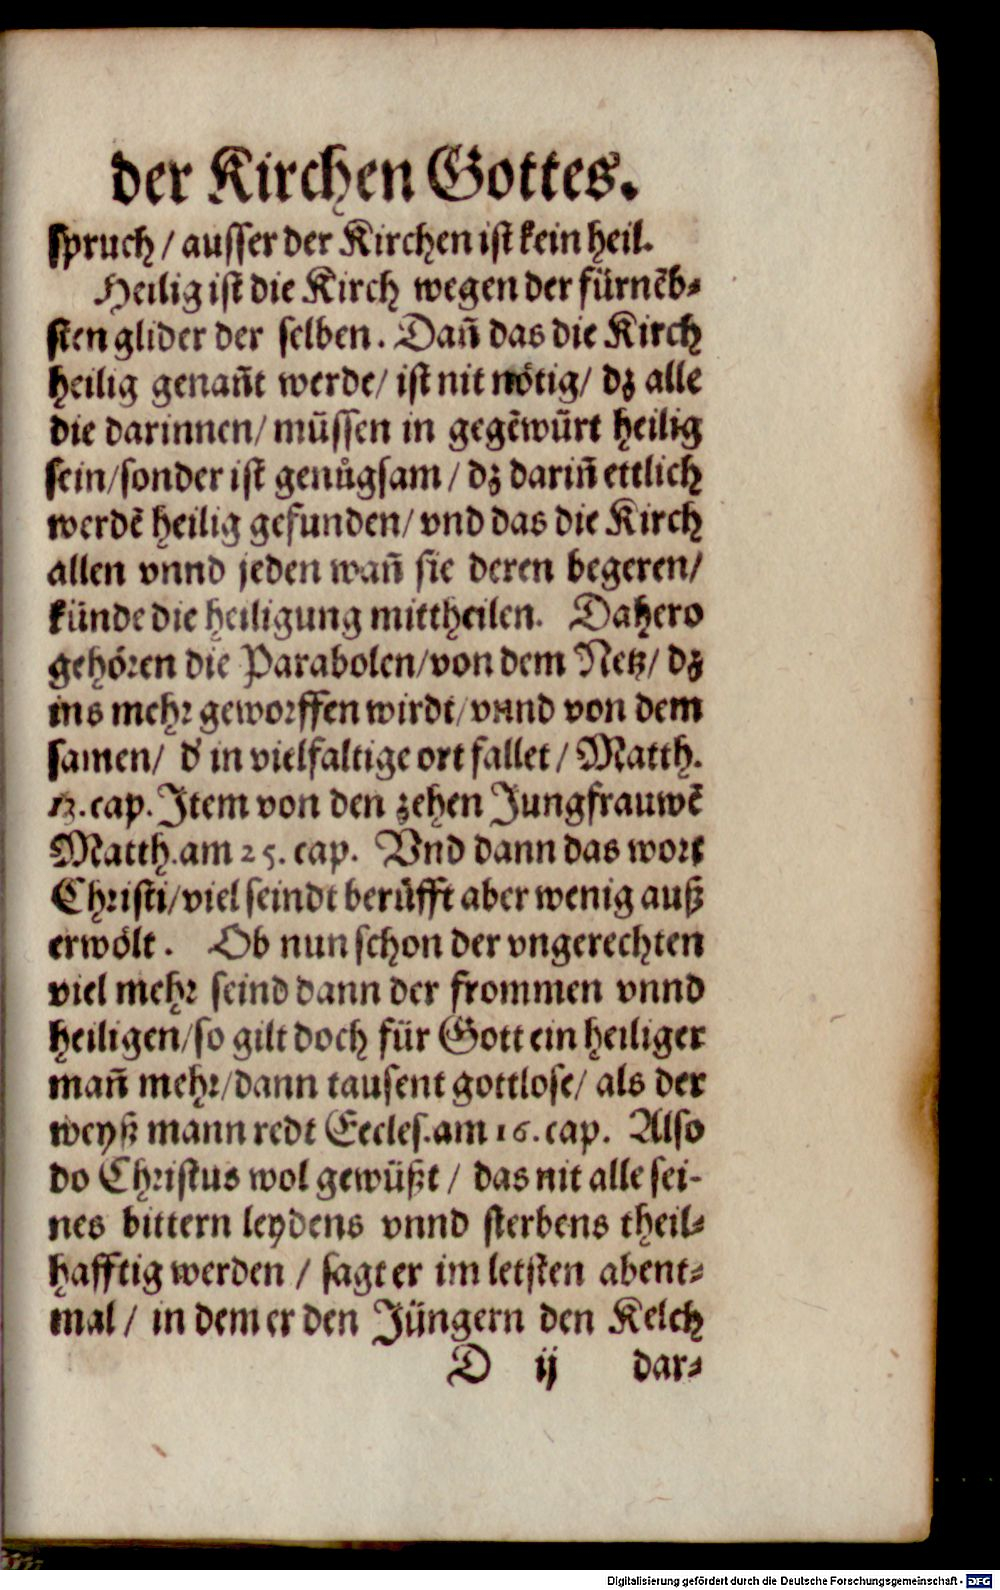 der Kirchen Gottes.
spruch / ausser der Kirchen ist kein heil.
Heilig ist die Kirch wegen der fürnẽb⸗
sten glider der selben. Dañ das die Kirch
heilig genañt werde / ist nit nötig / dz alle
die darinnen / müssen in gegẽwürt heilig
sein / sonder ist genůgsam / dz dariñ ettlich
werdẽ heilig gefunden / vnd das die Kirch
allen vnnd jeden wañ sie deren begeren /
künde die heiligung mittheilen. Dahero
gehören die Parabolen / von dem Netz / dz
ins mehr geworffen wirdt / vnnd von dem
samen / d' in vielfaltige ort fallet / Matth.
13. cap. Item von den zehen Jungfrauwẽ
Matth. am 25. cap. Vnd dann das wort
Christi / viel seindt berüfft aber wenig auß
erwölt. Ob nun schon der vngerechten
viel mehr seind dann der frommen vnnd
heiligen / so gilt doch für Gott ein heiliger
mañ mehr / dann tausent gottlose / als der
weyß mann redt Eccles. am 16. cap. Also
do Christus wol gewüßt / das nit alle sei-
nes bittern leydens vnnd sterbens theil⸗
hafftig werden / sagt er im letsten abent⸗
mal / in dem er den Jüngern den Kelch
D ij dar⸗
Digitalisierung gefördert durch die Deutsche Forschungsgemeinschaft - DFG